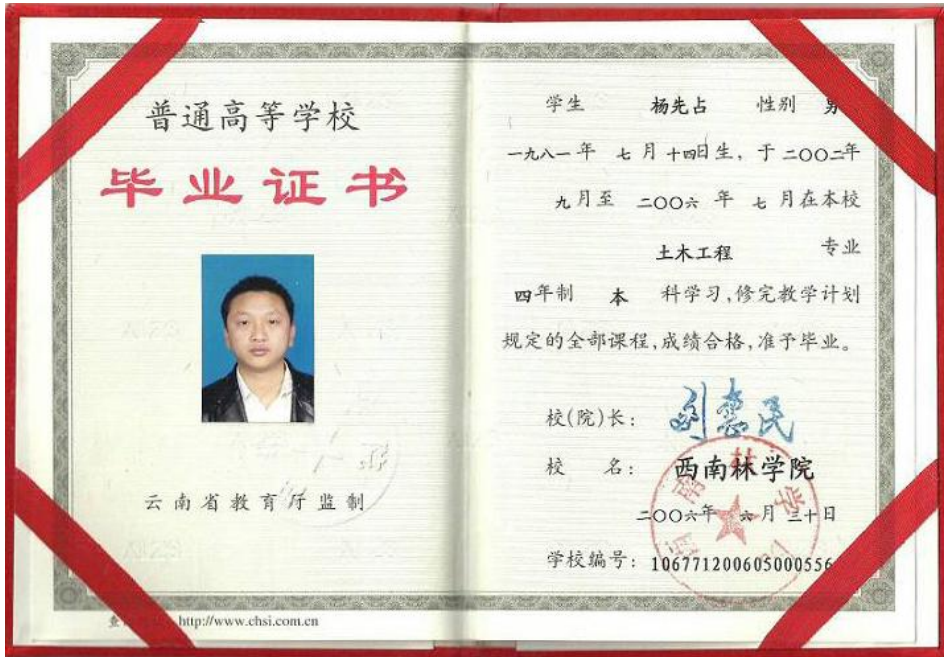 普通高等学校
毕业证书
云南省教育厅监制
http://www.chsi.com.cn
学生 杨先占 性别 男
一九八一年 七月十四日生，于二〇〇二年
九月至 二〇〇六年 七月在本校
土木工程 专业
四年制 本 科学习，修完教学计划
规定的全部课程，成绩合格，准予毕业。
校(院)长：刘惠民
校 名：西南林学院
二〇〇六年 六月 三十日
学校编号：106771200605000556